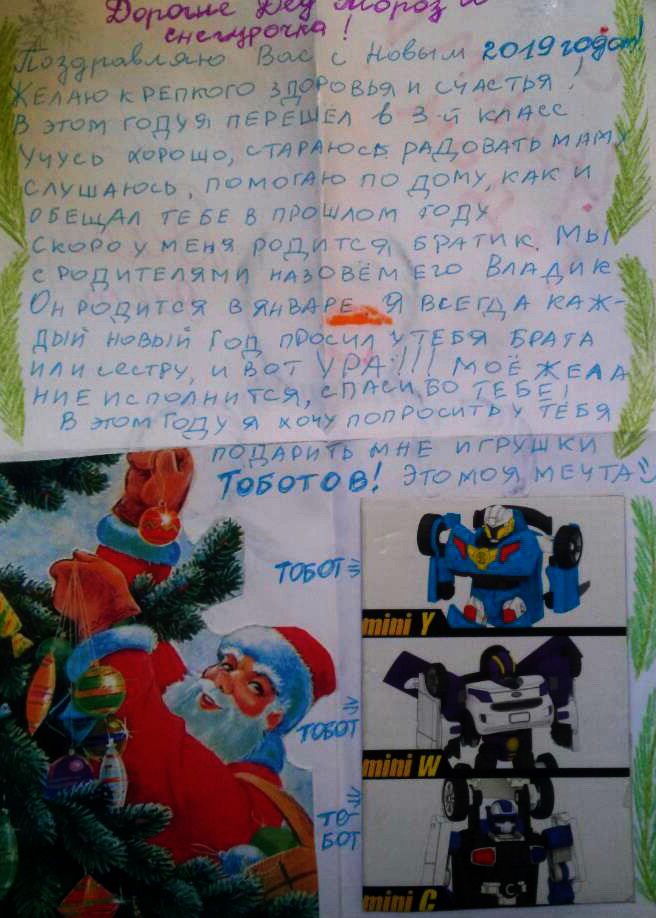 Дорогие Дед Мороз и
снегурочка!
Поздравляю Вас с Новым 2019 годом!
Желаю крепкого здоровья и счастья!
В этом году я перешёл в 3-й класс
Учусь хорошо, стараюсь радовать маму
слушаюсь, помогаю по дому, как и
обещал тебе в прошлом году
Скоро у меня родится братик. Мы
с родителями назовём его Владик
Он родится в январе. Я всегда каж-
дый новый год просил у тебя брата
или сестру, и вот УРА!!! моё жела
ние исполнится, спасибо тебе!
В этом году я хочу попросить у тебя
подарить мне игрушки
ТОБОТОВ! это моя мечта
ТОБОТ
mini Y
ТОБОТ
mini W
ТО-
БОТ
mini C